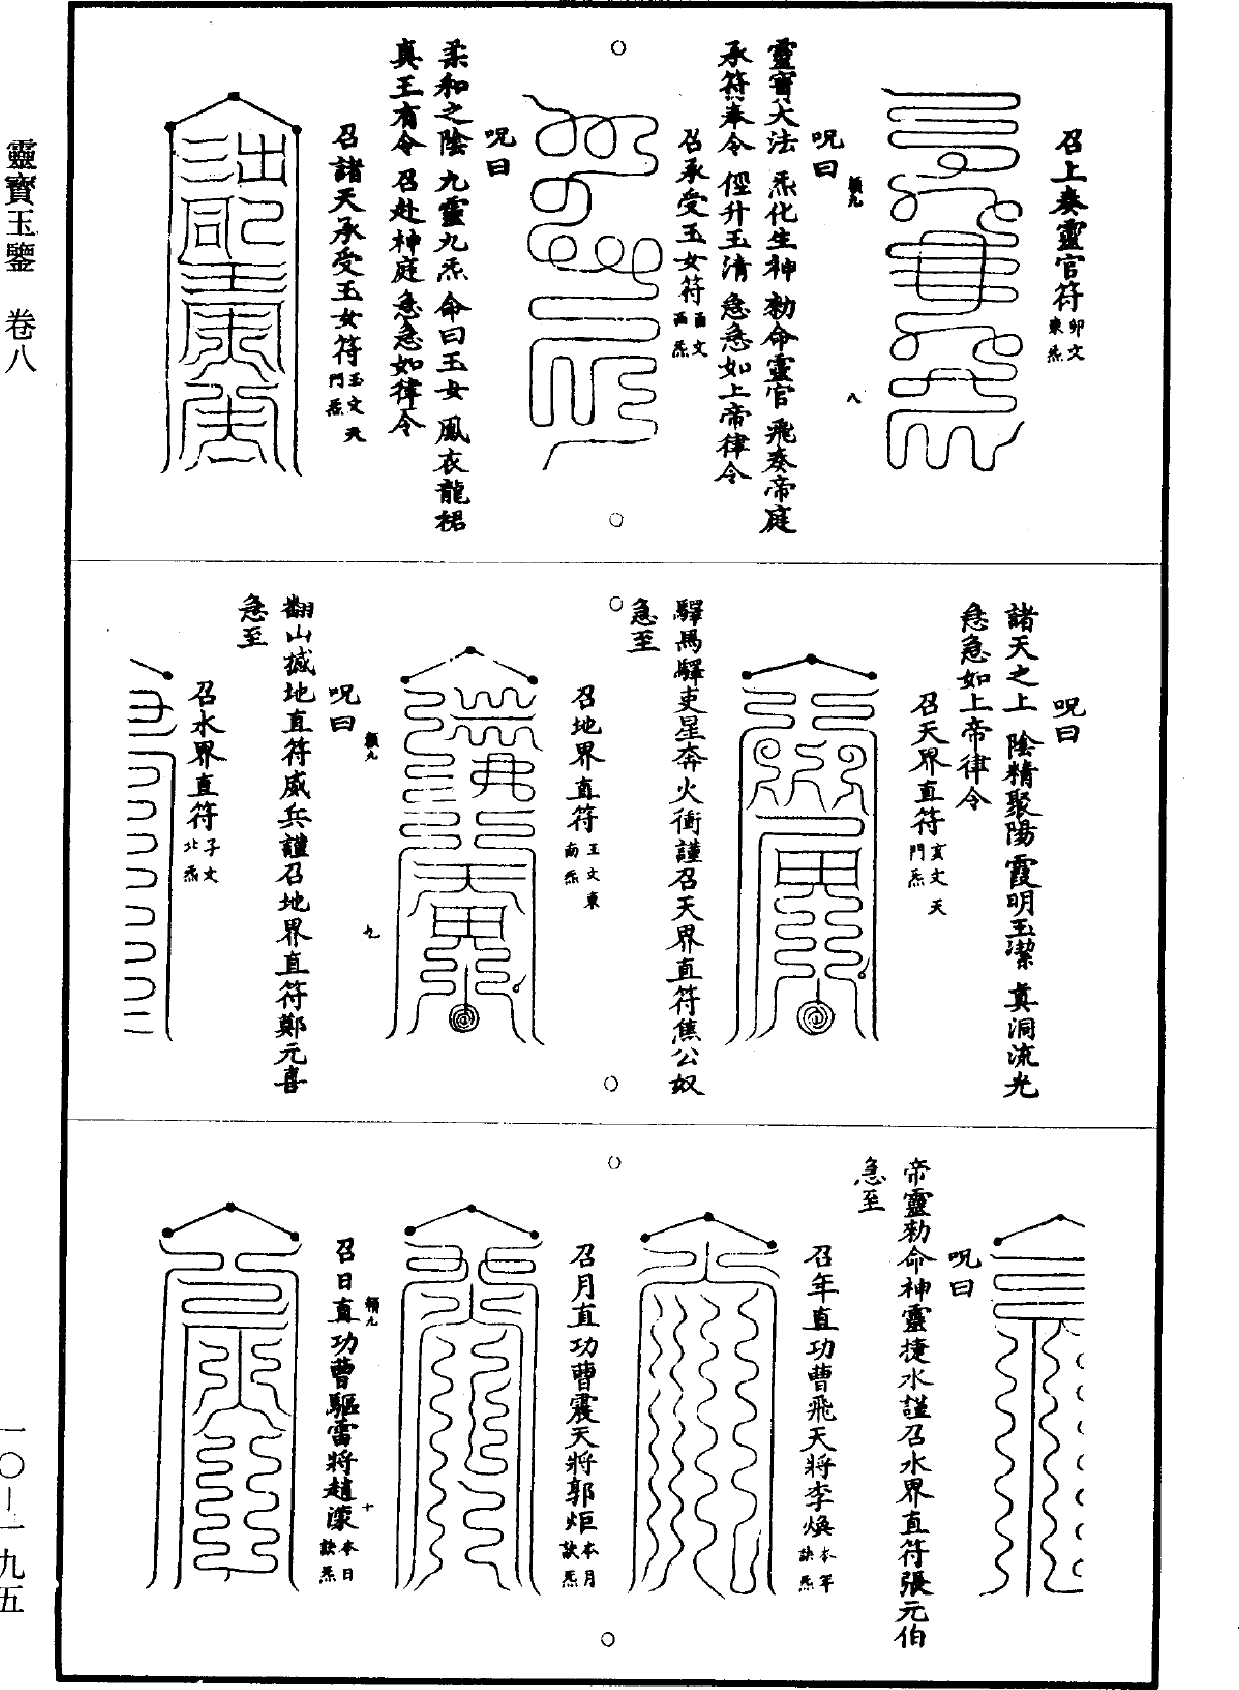 召上奏靈官符 卯文東炁
呪曰
靈寶大法 炁化生神 勑命靈官 飛奏帝庭
承符奉令 徑升玉清 急急如上帝律令
召承受玉女符 酉文西炁
呪曰
柔和之陰 九靈九炁 命曰玉女 鳳衣龍裙
真王有令 召赴神庭 急急如律令
召諸天承受玉女符 玉文天門炁
呪曰
諸天之上 陰精聚陽 霞明玉潔 真洞流光
急急如上帝律令
召天界直符 亥文天門炁
驛馬驛吏星奔火衝謹召天界直符焦公奴
急至
召地界直符 王文東南炁
呪曰
翻山撼地直符威兵謹召地界直符鄭元喜
急至
召水界直符 子文北炁
呪曰
帝靈勑命神靈捷水謹召水界直符張元伯
急至
召年直功曹飛天將李煥 本年訣炁
召月直功曹震天將郭炬 本月訣炁
召日直功曹驅雷將趙濛 本日訣炁
靈寶玉鑒 卷八
一〇—一九五
八
九
十